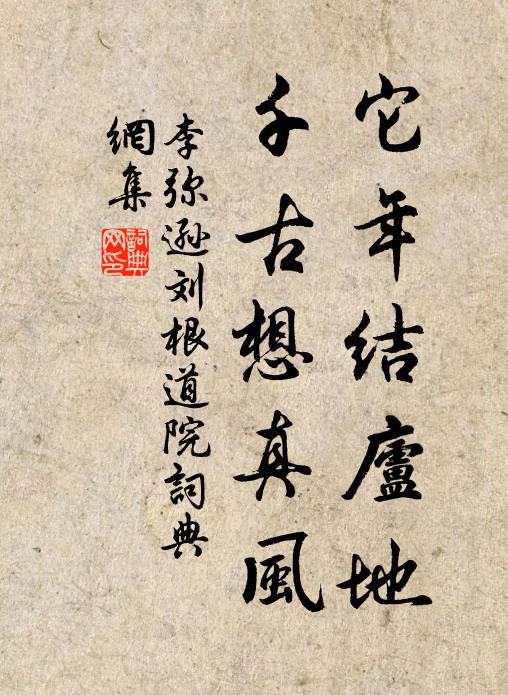 它年结廬地
千古想真風
李弥遜刘根道院詞典
網集
詞典
网印